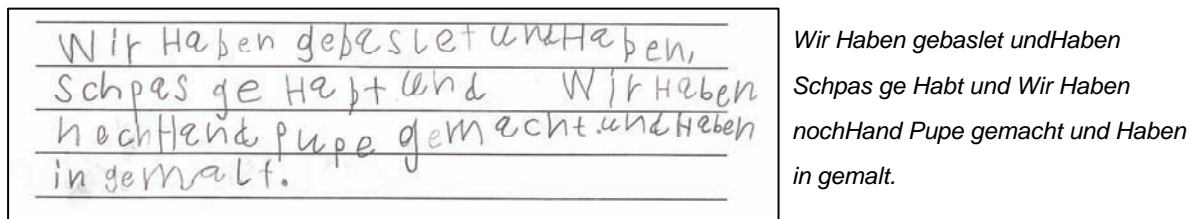 Wir Haben gebaslet undHaben,
Schpas ge Habt und Wir Haben
nochHand pupe gemacht.und Haben
in gemalt.
Wir Haben gebaslet undHaben
Schpas ge Habt und Wir Haben
nochHand Pupe gemacht und Haben
in gemalt.